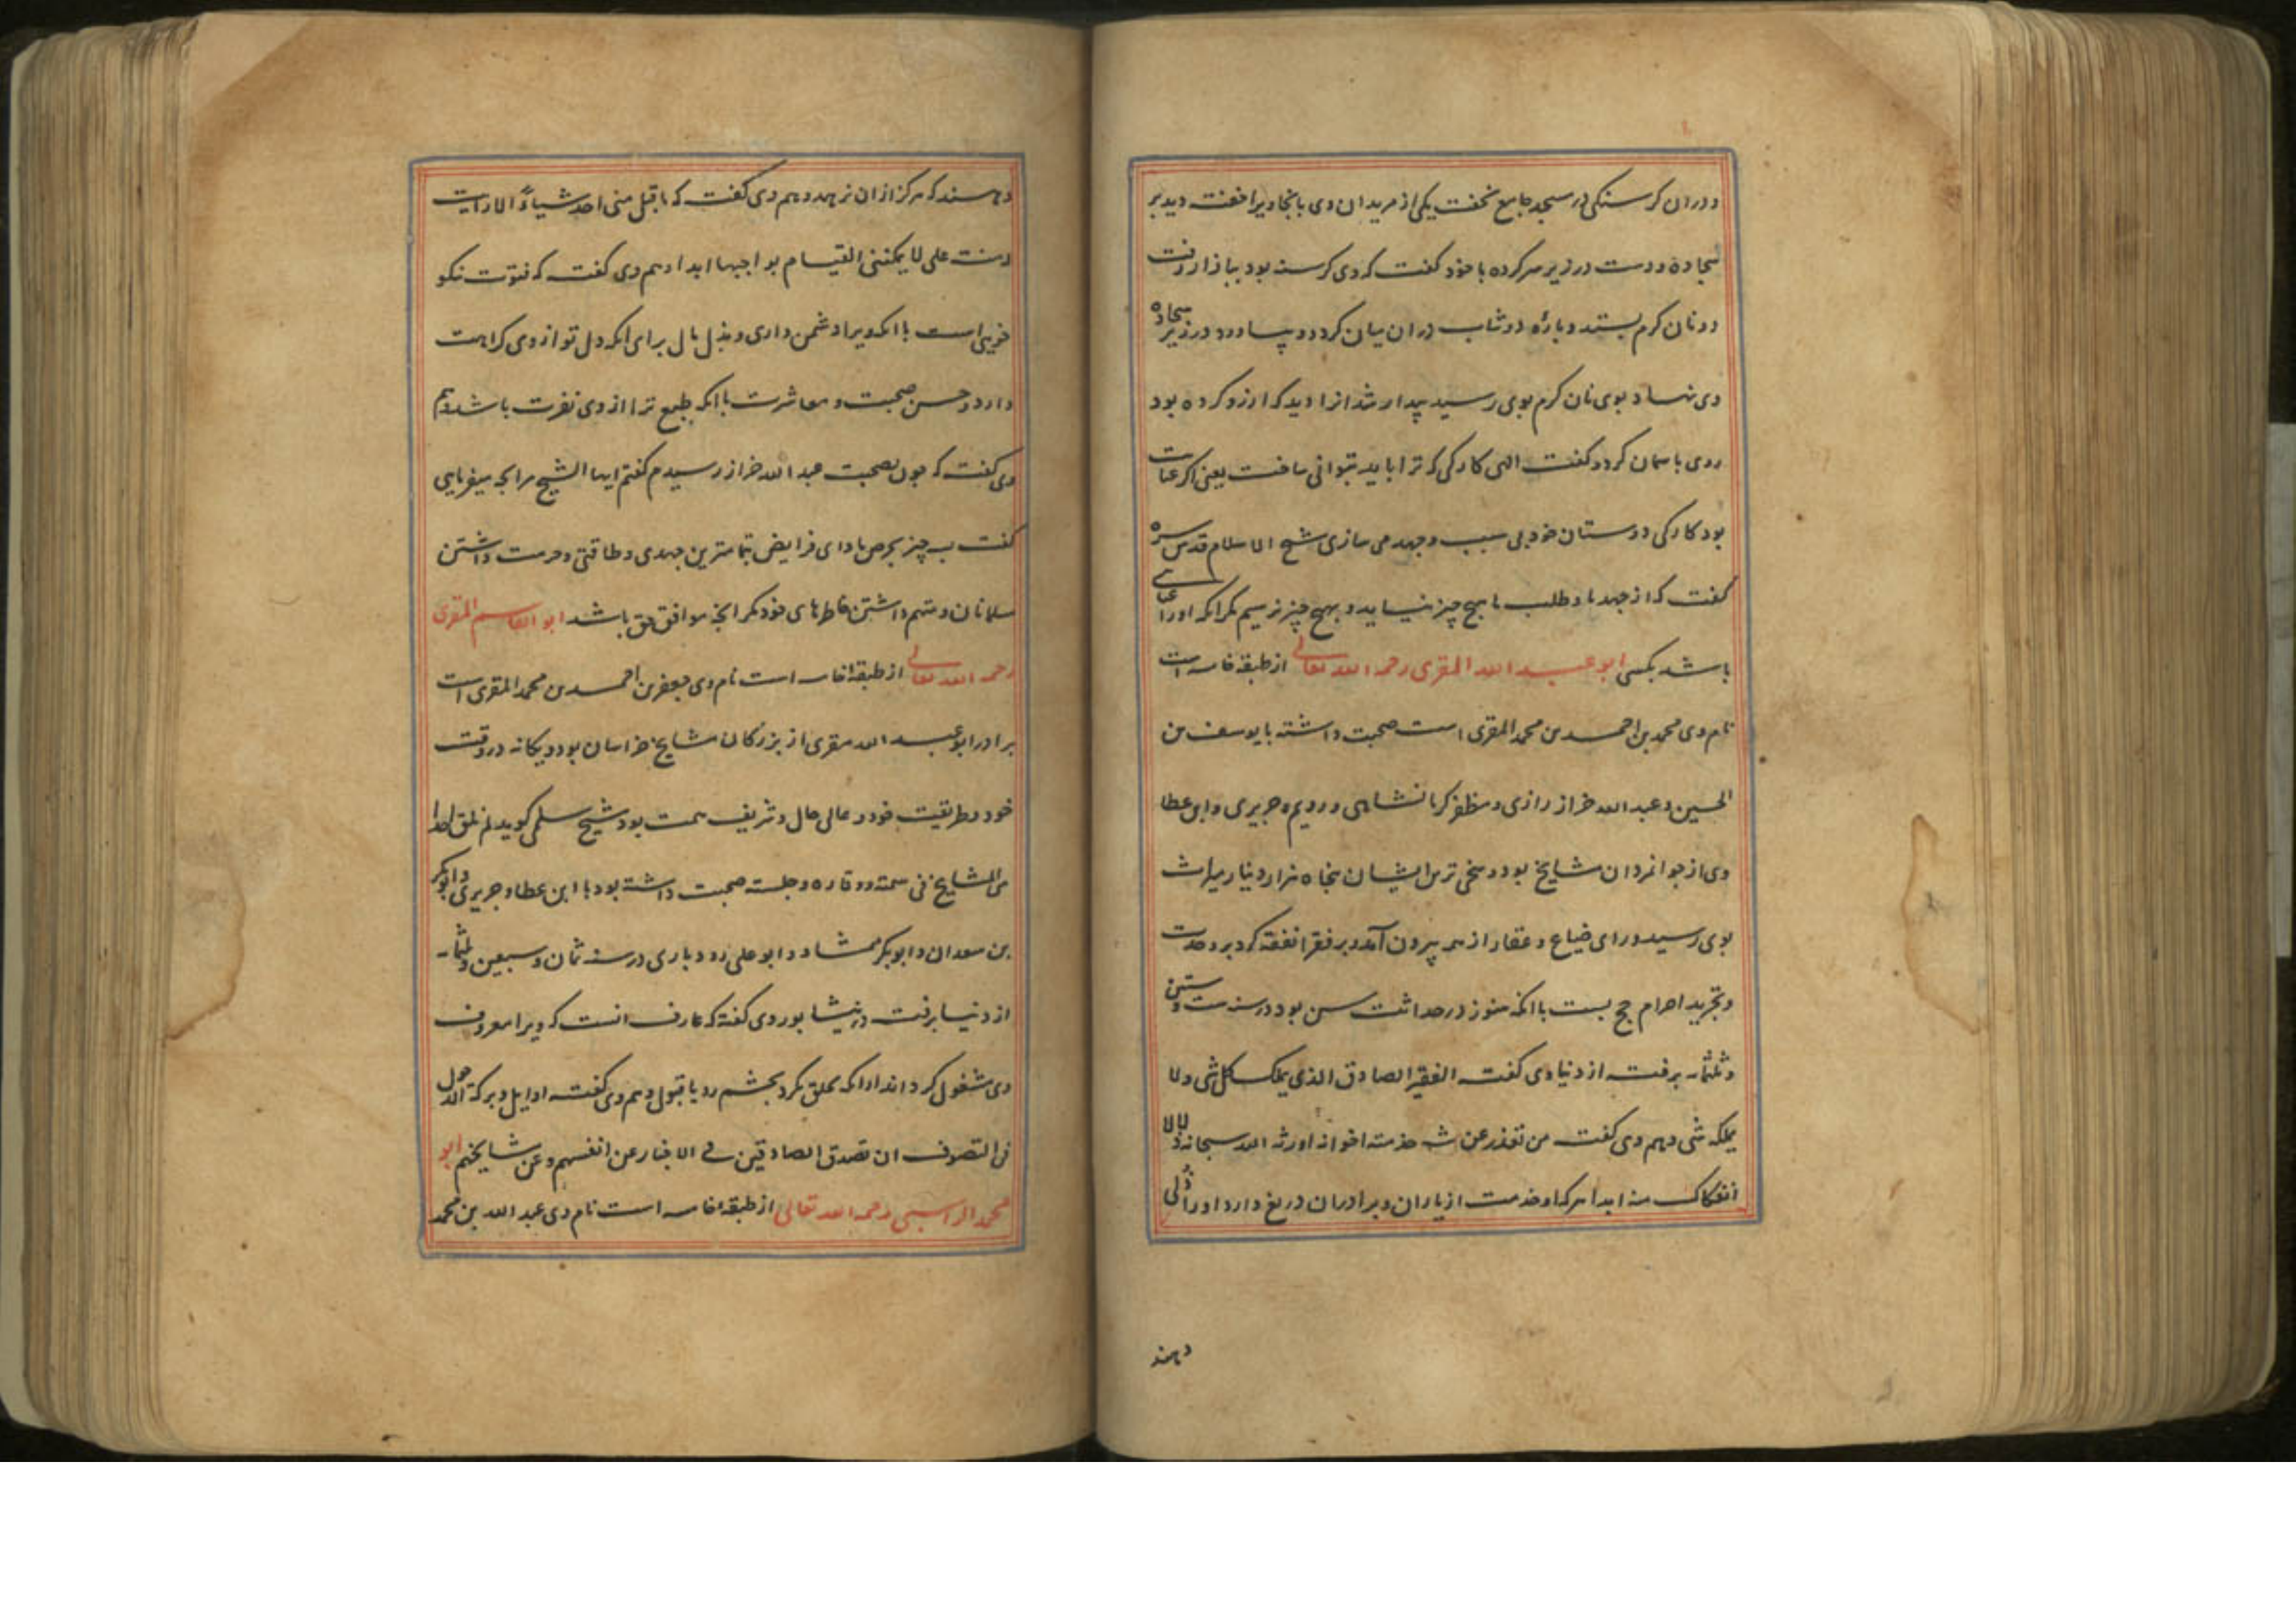 ودران کرسنکی در مسجد جامع بخفت یکی از مریدان وی بانجا ویرا خفته دید بر
سجاده ودست در زیر سر کرده با خود کفت که وی کرسنه بود ببازار رفت
دو نان کرم بستد وپاره دوشاب دران میان کرد وبیاورد ودر زیر سجاده
وی نهاد بوی نان کرم بوی رسید بیدار شد انرا دید که ارزو کرده بود
روی باسمان کرد وکفت الهی کارکی که ترا باید بتوانی ساخت یعنی اکر عنایت
بود کارکی دوستان خود بی سبب وجهد می سازی شیخ الاسلام قدس سره
کفت که از جهد ما وطلب ما هیچ چیز نیاید وبهیچ چیز نرسیم مکر انکه اورا عنایتی
باشد بکسی ابو عبد الله المقری رحمه الله تعالی از طبقه خامسه است
نام وی محمد بن احمد بن محمد المقری است صحبت داشته با یوسف بن
الحسین وعبد الله خراز رازی ومظفر کرمانشاهی ورویم وجریری وابن عطا
وی از جوانمردان مشایخ بود وسخی ترین ایشان پنجاه هزار دینار میراث
بوی رسید ورای ضیاع وعقار از همه بیرون آمد وبر فقرا نفقه کرد بر وحدت
وتجرید احرام حج بست با انکه هنوز در حداثت سن بود در سنه ست وستین
وثلثمایه برفت از دنیا وی کفت الفقیر الصادق الذی یملک کل شی ولا
یملکه شی وهم وی کفت من تعذر عن خدمة اخوانه اورثه الله سبحانه ذلا لا
انفکاک منه ابدا هر که او خدمت از یاران وبرادران دریغ دارد اورا ذلی
دهند
دهند که هرکز ازان نرهد وهم وی کفت که ما قبل منی احد شیاء الا رایت
له منة علی لا یمکننی القیام بواجبها ابدا وهم وی کفت که فتوت نیکو
خویی است با انکه ویرا دشمن داری وبذل مال برای انکه دل تو از وی کراهت
دارد وحسن صحبت ومعاشرت با انکه طبع ترا از وی نفرت باشد وهم
وی کفت که چون بصحبت عبد الله خراز رسیدم کفتم ایها الشیخ مرا بچه میفرمایی
کفت بسه چیز بحرص بادای فرایض بتمامترین جهدی وطاقتی وحرمت داشتن
مسلمانان ومتهم داشتن خاطرهای خود مکر انچه موافق حق باشد ابو القاسم المقری
رحمه الله تعالی از طبقه خامسه است نام وی جعفر بن احمد بن محمد المقری است
برادر ابو عبد الله مقری از بزرکان مشایخ خراسان بود ویکانه در وقت
خود وطریقت خود وعالی حال وشریف همت بود شیخ سلمی کوید لم نلق احدا
من المشایخ فی سمته ووقاره وجلسته صحبت داشته بود با ابن عطا وجریری وابوبکر
بن سعدان وابوبکر ممشاد وابو علی رودباری در سنه ثمان وسبعین وثلثمایه
از دنیا برفت در نیشابور وی کفته که عارف انست که ویرا معروف
وی مشغول کرداند ازانکه بخلق نکرد بچشم رد یا قبول وهم وی کفت اوایل وبرکة الدخول
فی التصوف ان تصدق الصادقین فی الاخبار عن انفسهم وعن مشایخهم ابو
محمد الراسبی رحمه الله تعالی از طبقه خامسه است نام وی عبد الله بن محمد